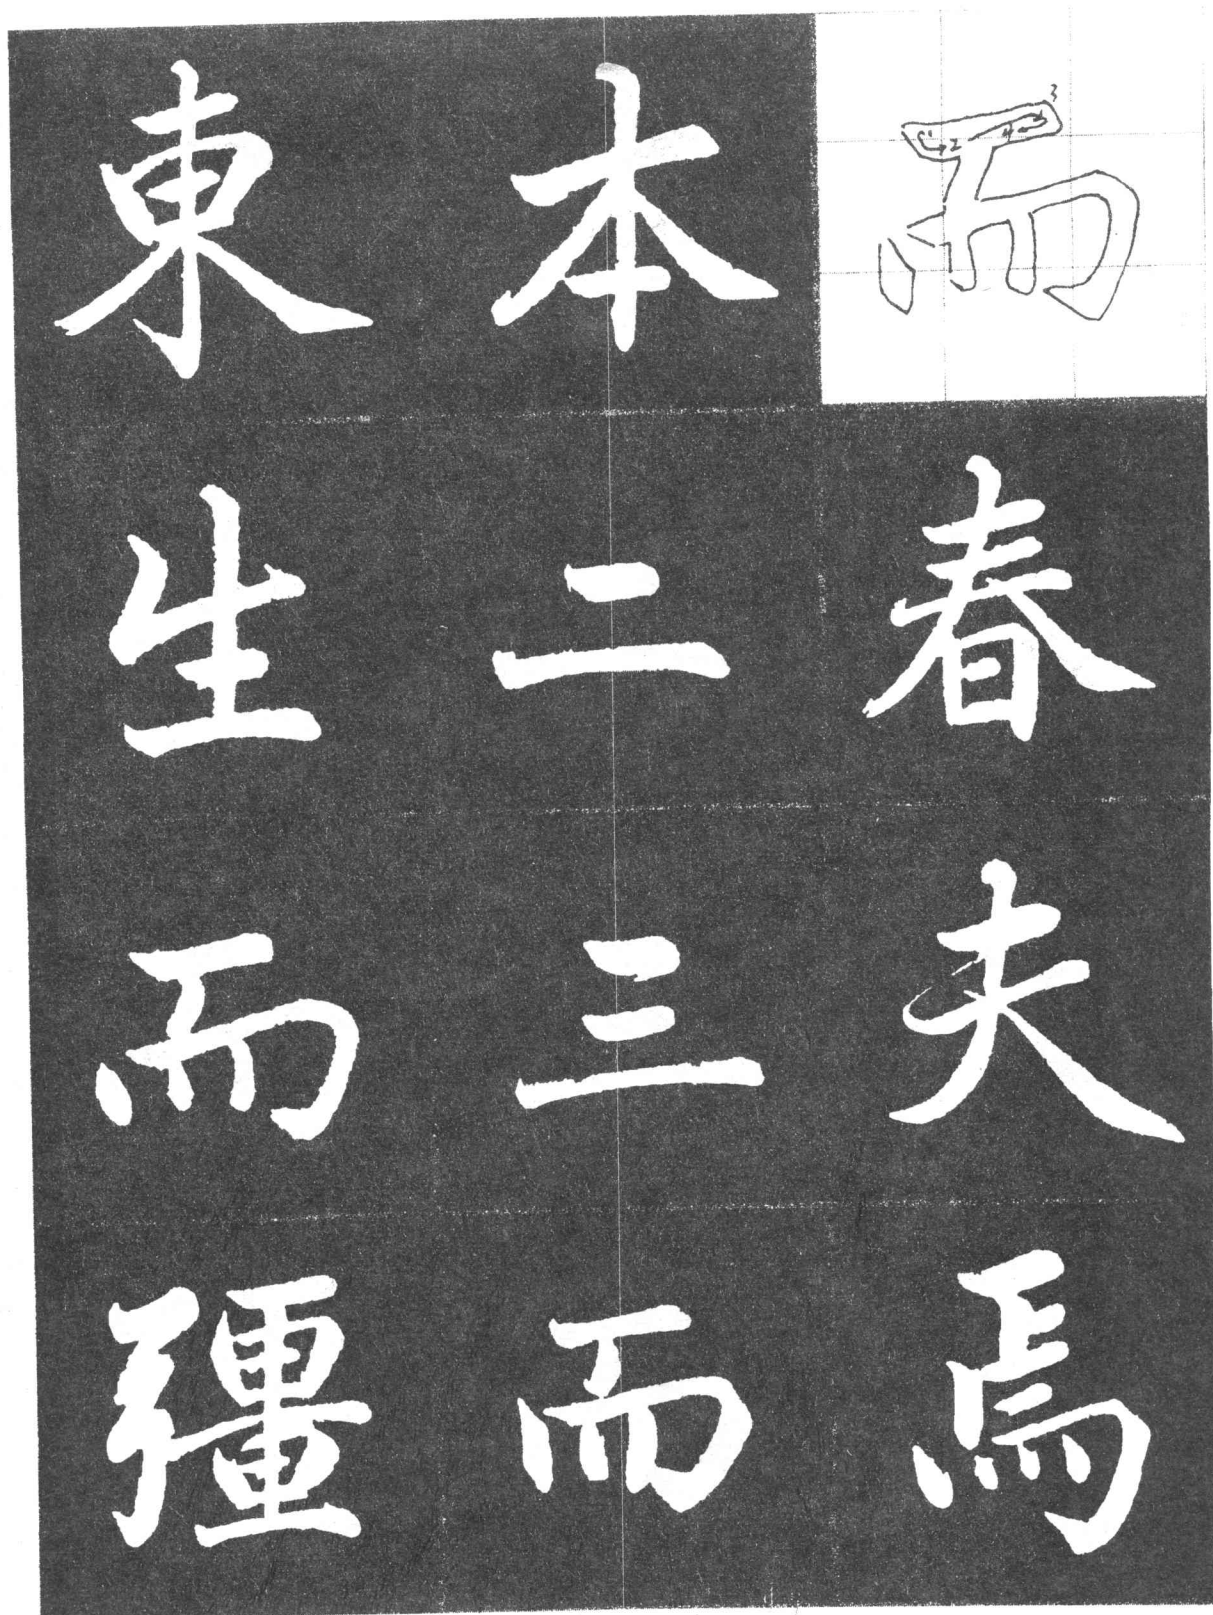 而春夫焉
本二三而
東生而彊